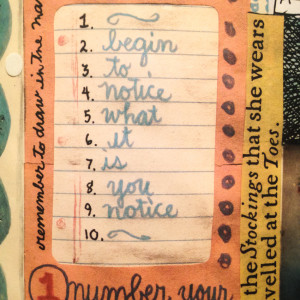 remember to draw in the na
1.
2. begin
3. to
4. notice
5. what
6. it
7. is
8. you
9. notice
10.
1 number your
the Stockings that she wears
velled at the Toes.